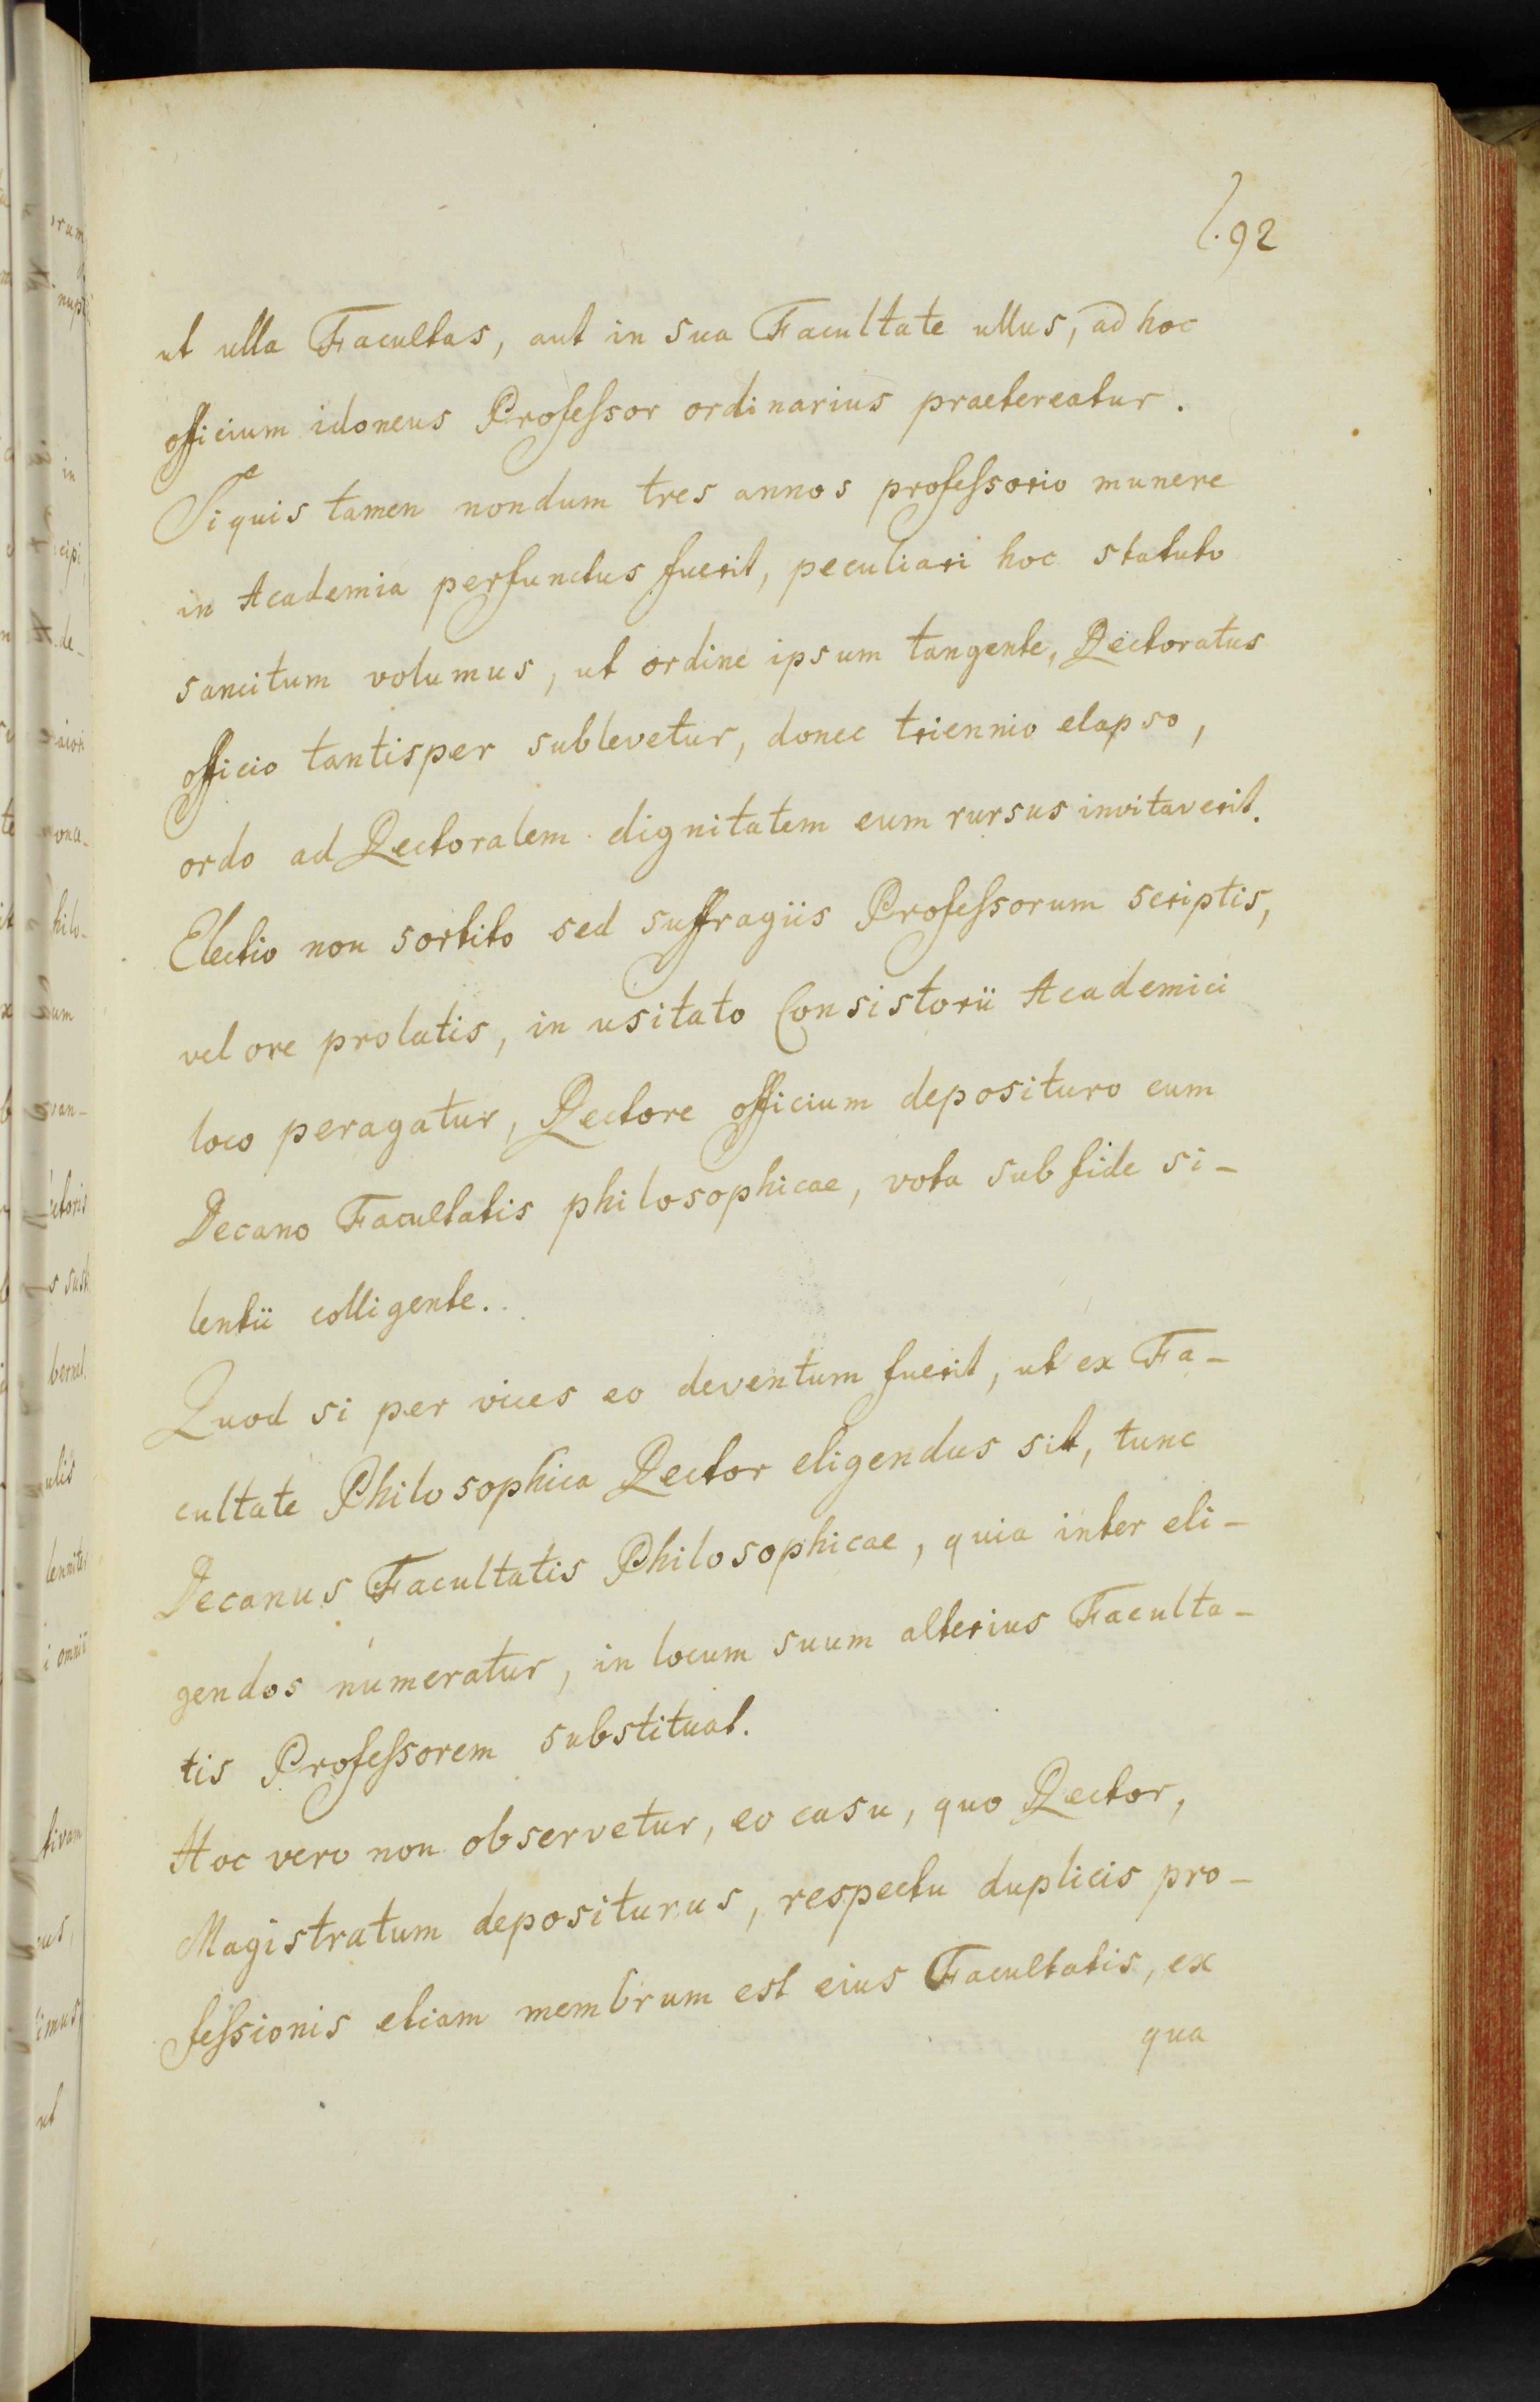 l. 92
ut ulla Facultas, aut in sua Facultate ullus, ad hoc
officium idoneus Profeſsor ordinarius praetereatur.
Siquis tamen nondum tres annos profeſsorio munere
in Academia perfunctus fuerit, peculiari hoc statuto
sancitum volumus, ut ordine ipsum tangente, Rectoratus
officio tantisper sublevetur, donec triennio elapso,
ordo ad Rectoralem dignitatem eum rursus invitaverit.
Electio non sortito sed suffragiis Profeſsorum scriptis,
vel ore prolatis, in usitato Consistorii Academici
loco peragatur, Rectore officium deposituro cum
Decano Facultatis philosophicae, vota sub fide si-
lentii colligente.
Quod si per vices eo deventum fuerit, ut ex Fa-
cultate Philosophica Rector eligendus sit, tunc
Decanus Facultatis Philosophicae, quia inter eli-
gendos numeratur, in locum suum alterius Faculta-
tis Profeſsorem substituat.
Hoc vero non observetur, eo casu, quo Rector,
Magistratum depositurus, respectu duplicis pro-
feſsionis etiam membrum est eius Facultatis, ex
qua